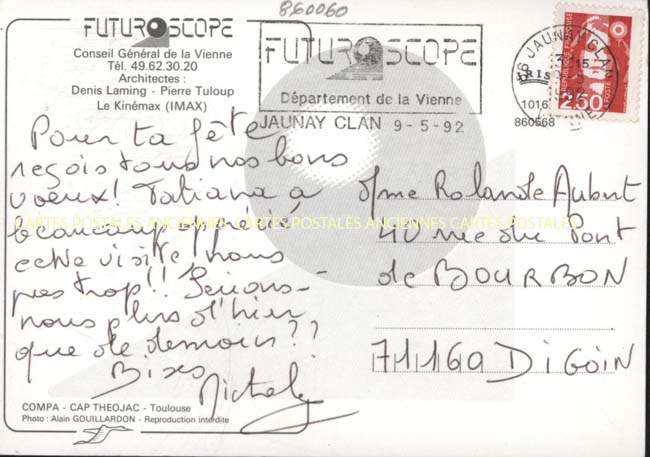 860060
FUTUROSCOPE
Conseil Général de la Vienne
Tél. 49.62.30.20
Architectes :
Denis Laming - Pierre Tuloup
Le Kinémax (IMAX)
Pour ta fête
reçois tous nos bons
voeux! Tatiana a
beaucoup apprécié
cette visite, nous
pas trop!! Serions-
nous plus d'hier
que de demain??
Bises
Michel
COMPA - CAP THEOJAC - Toulouse
Photo : Alain GOUILLARDON - Reproduction interdite
FUTUROSCOPE
Département de la Vienne
JAUNAY CLAN 9-5-92
86 JAUNAY CLAN
VIENNE
1016
860568
REPUBLIQUE FRANÇAISE
2,50
POSTES
Mme Rolande Aubert
40 rue du Pont
de BOURBON
71160 DIGOIN
CARTES POSTALES ANCIENNES CARTES POSTALES ANCIENNES CARTES POSTALES